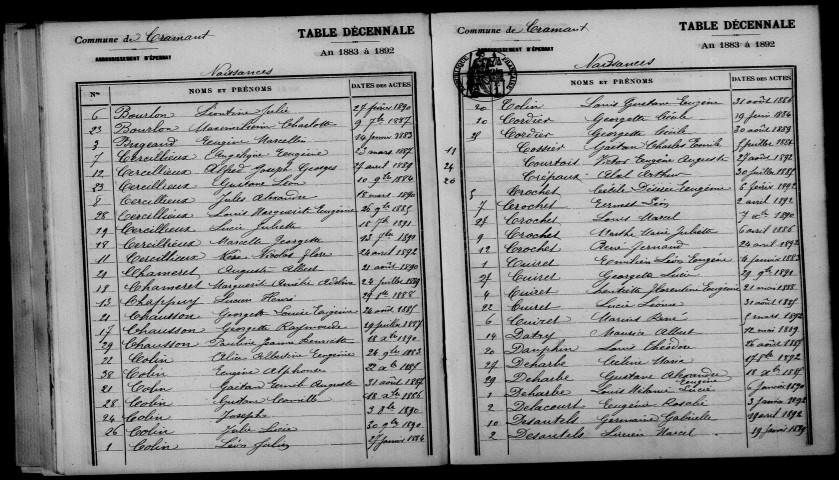 Commune de Cramant
TABLE DÉCENNALE
ARRONDISSEMENT D'ÉPERNAY
An 1883 à 1892
Naissances
Nos NOMS ET PRÉNOMS DATES DES ACTES
6 Bourlon Léontine Julie 27 février 1890
23 Bourlon Maximilien Charlotte 9 7bre 1887
3 Brigeard Eugène Marcellin 24 janvier 1883
7 Cercillieux Angélique Eugénie 23 mars 1887
12 Cercillieux Alfred Joseph Georges 27 avril 1889
23 Cercillieux Gustave Léon 10 9bre 1884
8 Cercillieux Jules Alexandre 18 mars 1890
28 Cercillieux Louise Marguerite Eugénie 26 9bre 1885
19 Cercillieux Lucie Juliette 1891
18 Cercillieux Marcelle Georgette 1891
11 Cercillieux Nicolas 24 avril 1892
21 Chameret Auguste Albert 21 août 1890
18 Chameret Marguerite Amélie 24 juillet 1889
13 Chappuy Lucien Henri 1888
21 Chausson Georgette Louise Eugénie 24 août 1885
17 Chausson Georgette Raymonde 19 juillet 1887
29 Chausson Pauline Jeanne Henriette 18 Xbre 1890
22 Colin Alice Albertine Eugénie 26 9bre 1883
38 Colin Eugène Alphonse 22 Xbre 1885
21 Colin Gaëtan Ernest Auguste 31 août 1887
28 Colin Gustave 18 Xbre 1886
24 Colin Joseph 3 8bre 1890
26 Colin Julie Lucie 30 9bre 1890
1 Colin Léon Julien 27 janvier 1884
Commune de Cramant
TABLE DÉCENNALE
ARRONDISSEMENT D'ÉPERNAY
An 1883 à 1892
Naissances
NOMS ET PRÉNOMS DATES DES ACTES
20 Colin Louis Gustave Eugène 31 août 1886
10 Cordier Georgette Cécile 19 juin 1884
Cordier Georgette Cécile 30 août 1889
11 Cossier Gaston Charles Emile 5 juillet 1886
24 Courtois Victor Eugène Auguste 27 août 1892
20 Crépaux Abel Arthur 30 juillet 1885
5 Crochet Cécile Désirée Eugénie 6 février 1892
7 Crochet Léon 2 avril 1892
27 Crochet Louis Marcel 7 Xbre 1890
9 Crochet Marthe Marie Juliette 6 avril 1886
12 Crochet René Fernand 24 avril 1892
1 Cuiret Emilien Léon Eugène 4 janvier 1883
27 Cuiret Georgette Lucie 29 9bre 1891
4 Cuiret Florentine Eugénie 21 mars 1888
22 Cuiret Lucie Léonie 31 août 1885
6 Cuiret Marius René 5 mars 1892
14 Datry Maurice Albert 12 mai 1889
20 Dauphin Louis Théodore 26 août 1887
27 Deharbe Hélène Marie 1892
29 Deharbe Gustave Alexandre Eugène 18 Xbre 1885
1 Deharbe Louis Lucie 6 janvier 1890
2 Delacourt Eugénie Rosalie 3 janvier 1892
10 Desautels Germaine Gabrielle 19 avril 1892
2 Desautels Lucien Marcel 19 janvier 1889